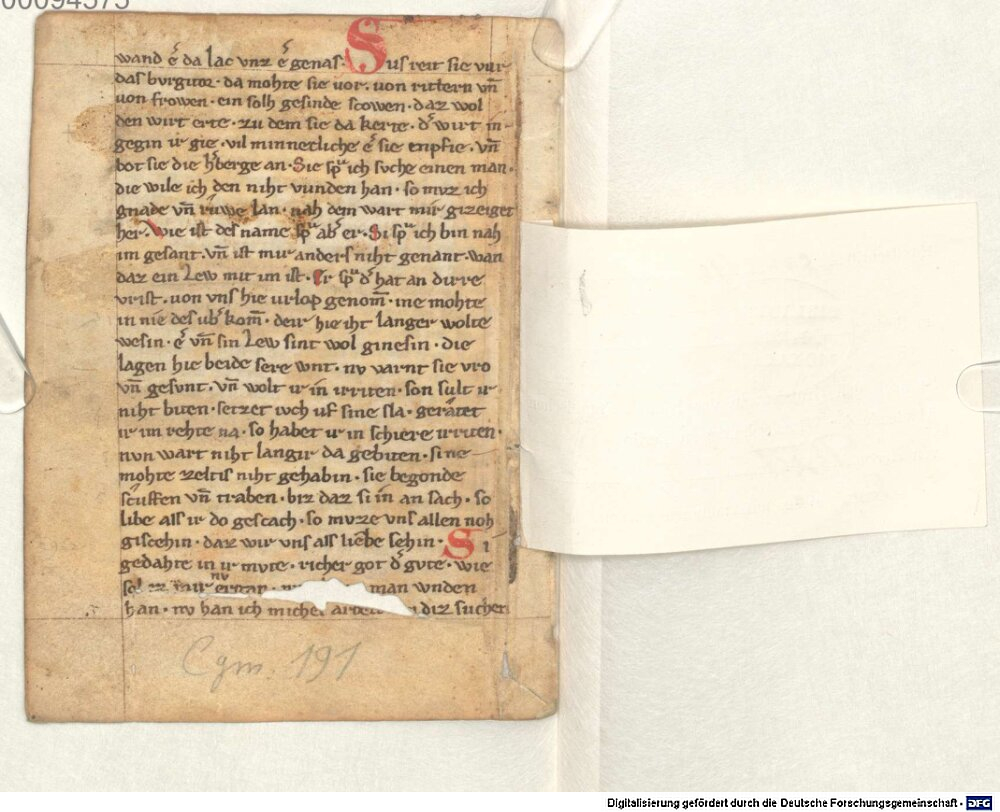 00094575
wand e͛ da lac vnz e͛ genas · Sus reit sie vur
das burgitor · da mohte sie vor · von rittern vn̄
von frowen · ein solh gesinde scowen · daz wol
den wirt erte · zu dem sie da kerte · d͛ wirt in
gegin ir gie · vil minnetliche e͛ sie enpfie · vn̄
bot sie die h͛berge an · Sie spͬ ich suche einen man ·
die wile ich den niht vunden han · so muz ich
gnade vn̄ ruwe lan · nah dem wart mir gizeiget
her · Wie ist des name spͬ ab͛ er · Si spͬ ich bin nah
im gesant · vn̄ ist mir anders niht genant · wan
daz ein Lew mit im ist · Er spͬ d͛ hat an dirre
vrist · von vns hie urlop genom̄ · ine mohte
in nie des ub͛ kom̄ · deir hie iht langer wolte
wesin · e͛ vn̄ sin Lew sint wol ginesin · die
lagen hie beide sere wnt · nv varnt sie vro
vn̄ gesunt · vn̄ wolt ir in irriten · son sult ir
niht biten · setzet ivch uf sine sla · geratet
ir im rehte na · so habet ir in schiere irriten ·
nvn wart niht langir da gebiten · sine
mohte zeltis niht gehabin · sie begonde
scuffen vn̄ traben · biz daz si in an sach · so
libe als ir do gescach · so mvze vns allen noh
giscehin · daz wir vns als liebe sehin · Si
gedahte in ir mvte · richer got d͛ gvte · wie
man wnden
han · nv han ich michel arbeit diz suchen
Cgm. 191
Digitalisierung gefördert durch die Deutsche Forschungsgemeinschaft - DFG